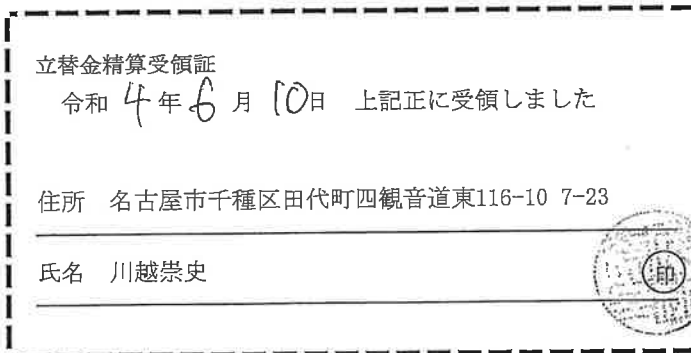 立替金精算受領証
令和 4 年 6 月 10日　上記正に受領しました
住所　名古屋市千種区田代町四観音道東116-10 7-23
氏名　川越崇史
印